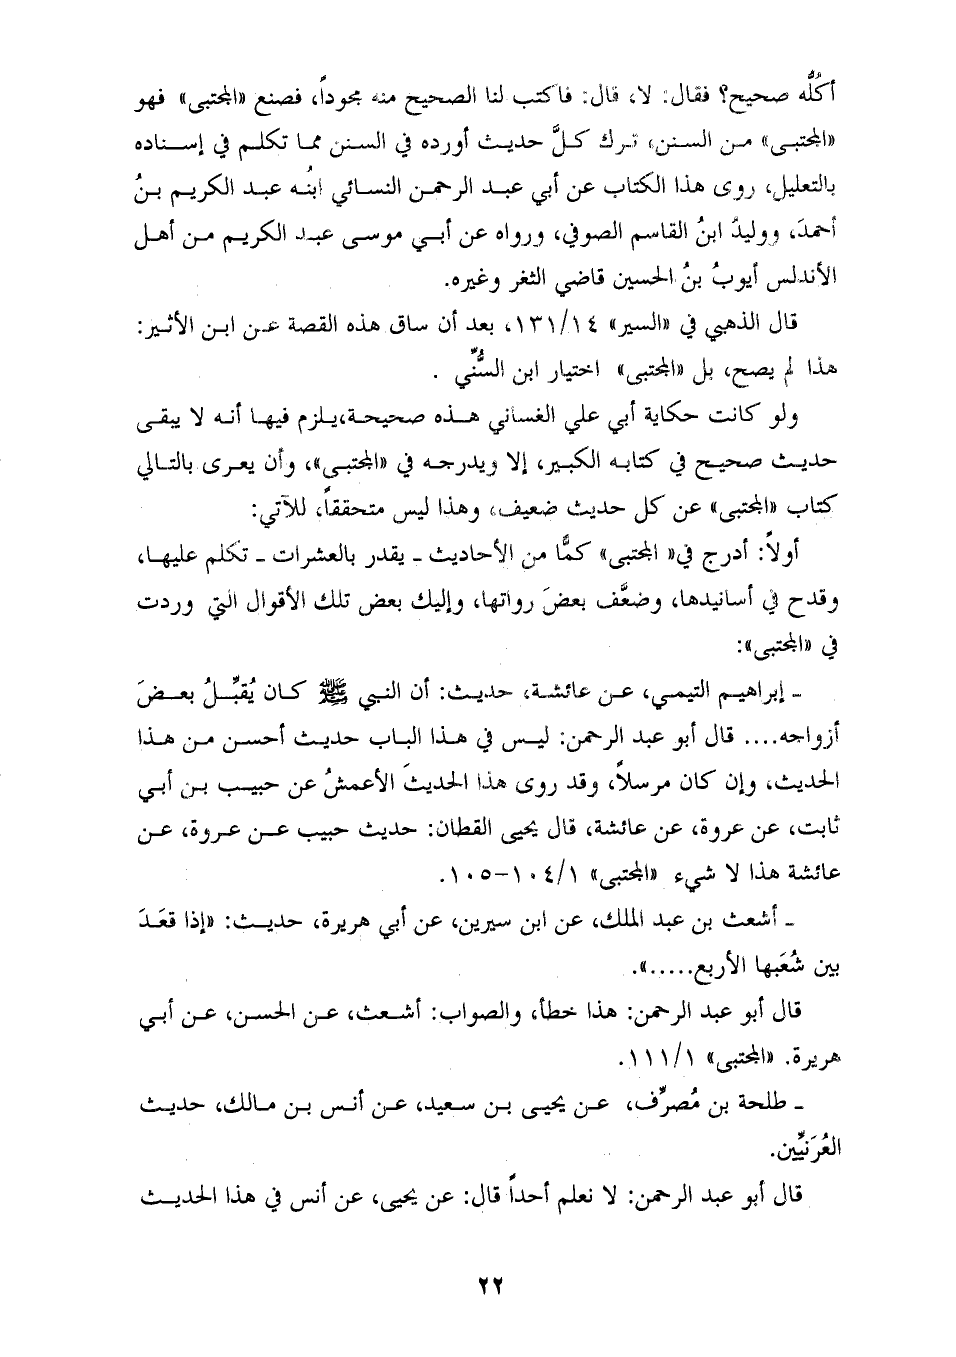 أكُلُّه صحيح؟ فقال: لا، قال: فاكتب لنا الصحيح منه مجوداً، فصنع «المجتبى» فهو
«المجتبـى» مـن السـنن، تـرك كـلَّ حديـث أورده في السنن ممـا تكلـم في إسـناده
بالتعليل، روى هذا الكتاب عن أبي عبـد الرحمـن النسـائي ابنُـه عبـد الكريـم بـنُ
أحمدَ، ووليدُ ابنُ القاسم الصوفي، ورواه عن أبـي موسـى عبـد الكريـم مـن أهـل
الأندلس أيوبُ بنُ الحسين قاضي الثغر وغيره.
قال الذهبي في «السير» ١٣١/١٤، بعد أن ساق هذه القصة عـن ابـن الأثيـر:
هذا لم يصح، بل «المجتبى» اختيار ابن السُّنِّي .
ولو كانت حكاية أبي علي الغساني هـذه صحيحـة، يلـزم فيهـا أنـه لا يبقـى
حديـث صحيـح في كتابـه الكبير، إلا ويدرجـه في «المجتبـى»، وأن يعـرى بالتـالي
كتاب «المجتبى» عن كل حديث ضعيف، وهذا ليس متحققاً، للآتي:
أولاً: أدرج في« المجتبى» كمًّا من الأحاديث ـ يقدر بالعشرات ـ تكلم عليهـا،
وقدح في أسانيدها، وضعَّف بعضَ رواتها، وإليك بعض تلك الأقوال التي وردت
في «المجتبى»:
ـ إبراهيـم التيمـي، عـن عائشـة، حديـث: أن النبي ﷺ كـان يُقبِّـلُ بعـضَ
أزواجه.... قال أبو عبد الرحمن: ليـس في هـذا البـاب حديـث أحسـن مـن هـذا
الحديث، وإن كان مرسلاً، وقد روى هذا الحديثَ الأعمشُ عن حبيـب بـن أبـي
ثابت، عن عروة، عن عائشة، قال يحيى القطان: حديث حبيب عـن عـروة، عـن
عائشة هذا لا شيء «المجتبى» ١٠٤/١-١٠٥.
ـ أشعث بن عبد الملك، عن ابن سيرين، عن أبي هريرة، حديـث: «إذا قعَـدَ
بين شُعَبها الأربع.....».
قال أبو عبد الرحمن: هذا خطأ، والصواب: أشـعث، عـن الحسـن، عـن أبـي
هريرة. «المجتبى» ١١١/١.
ـ طلحة بن مُصرِّف، عـن يحيـى بـن سـعيد، عـن أنـس بـن مـالك، حديـث
العُرَنيِّين.
قال أبو عبد الرحمن: لا نعلم أحداً قال: عن يحيى، عن أنس في هذا الحديـث
٢٢